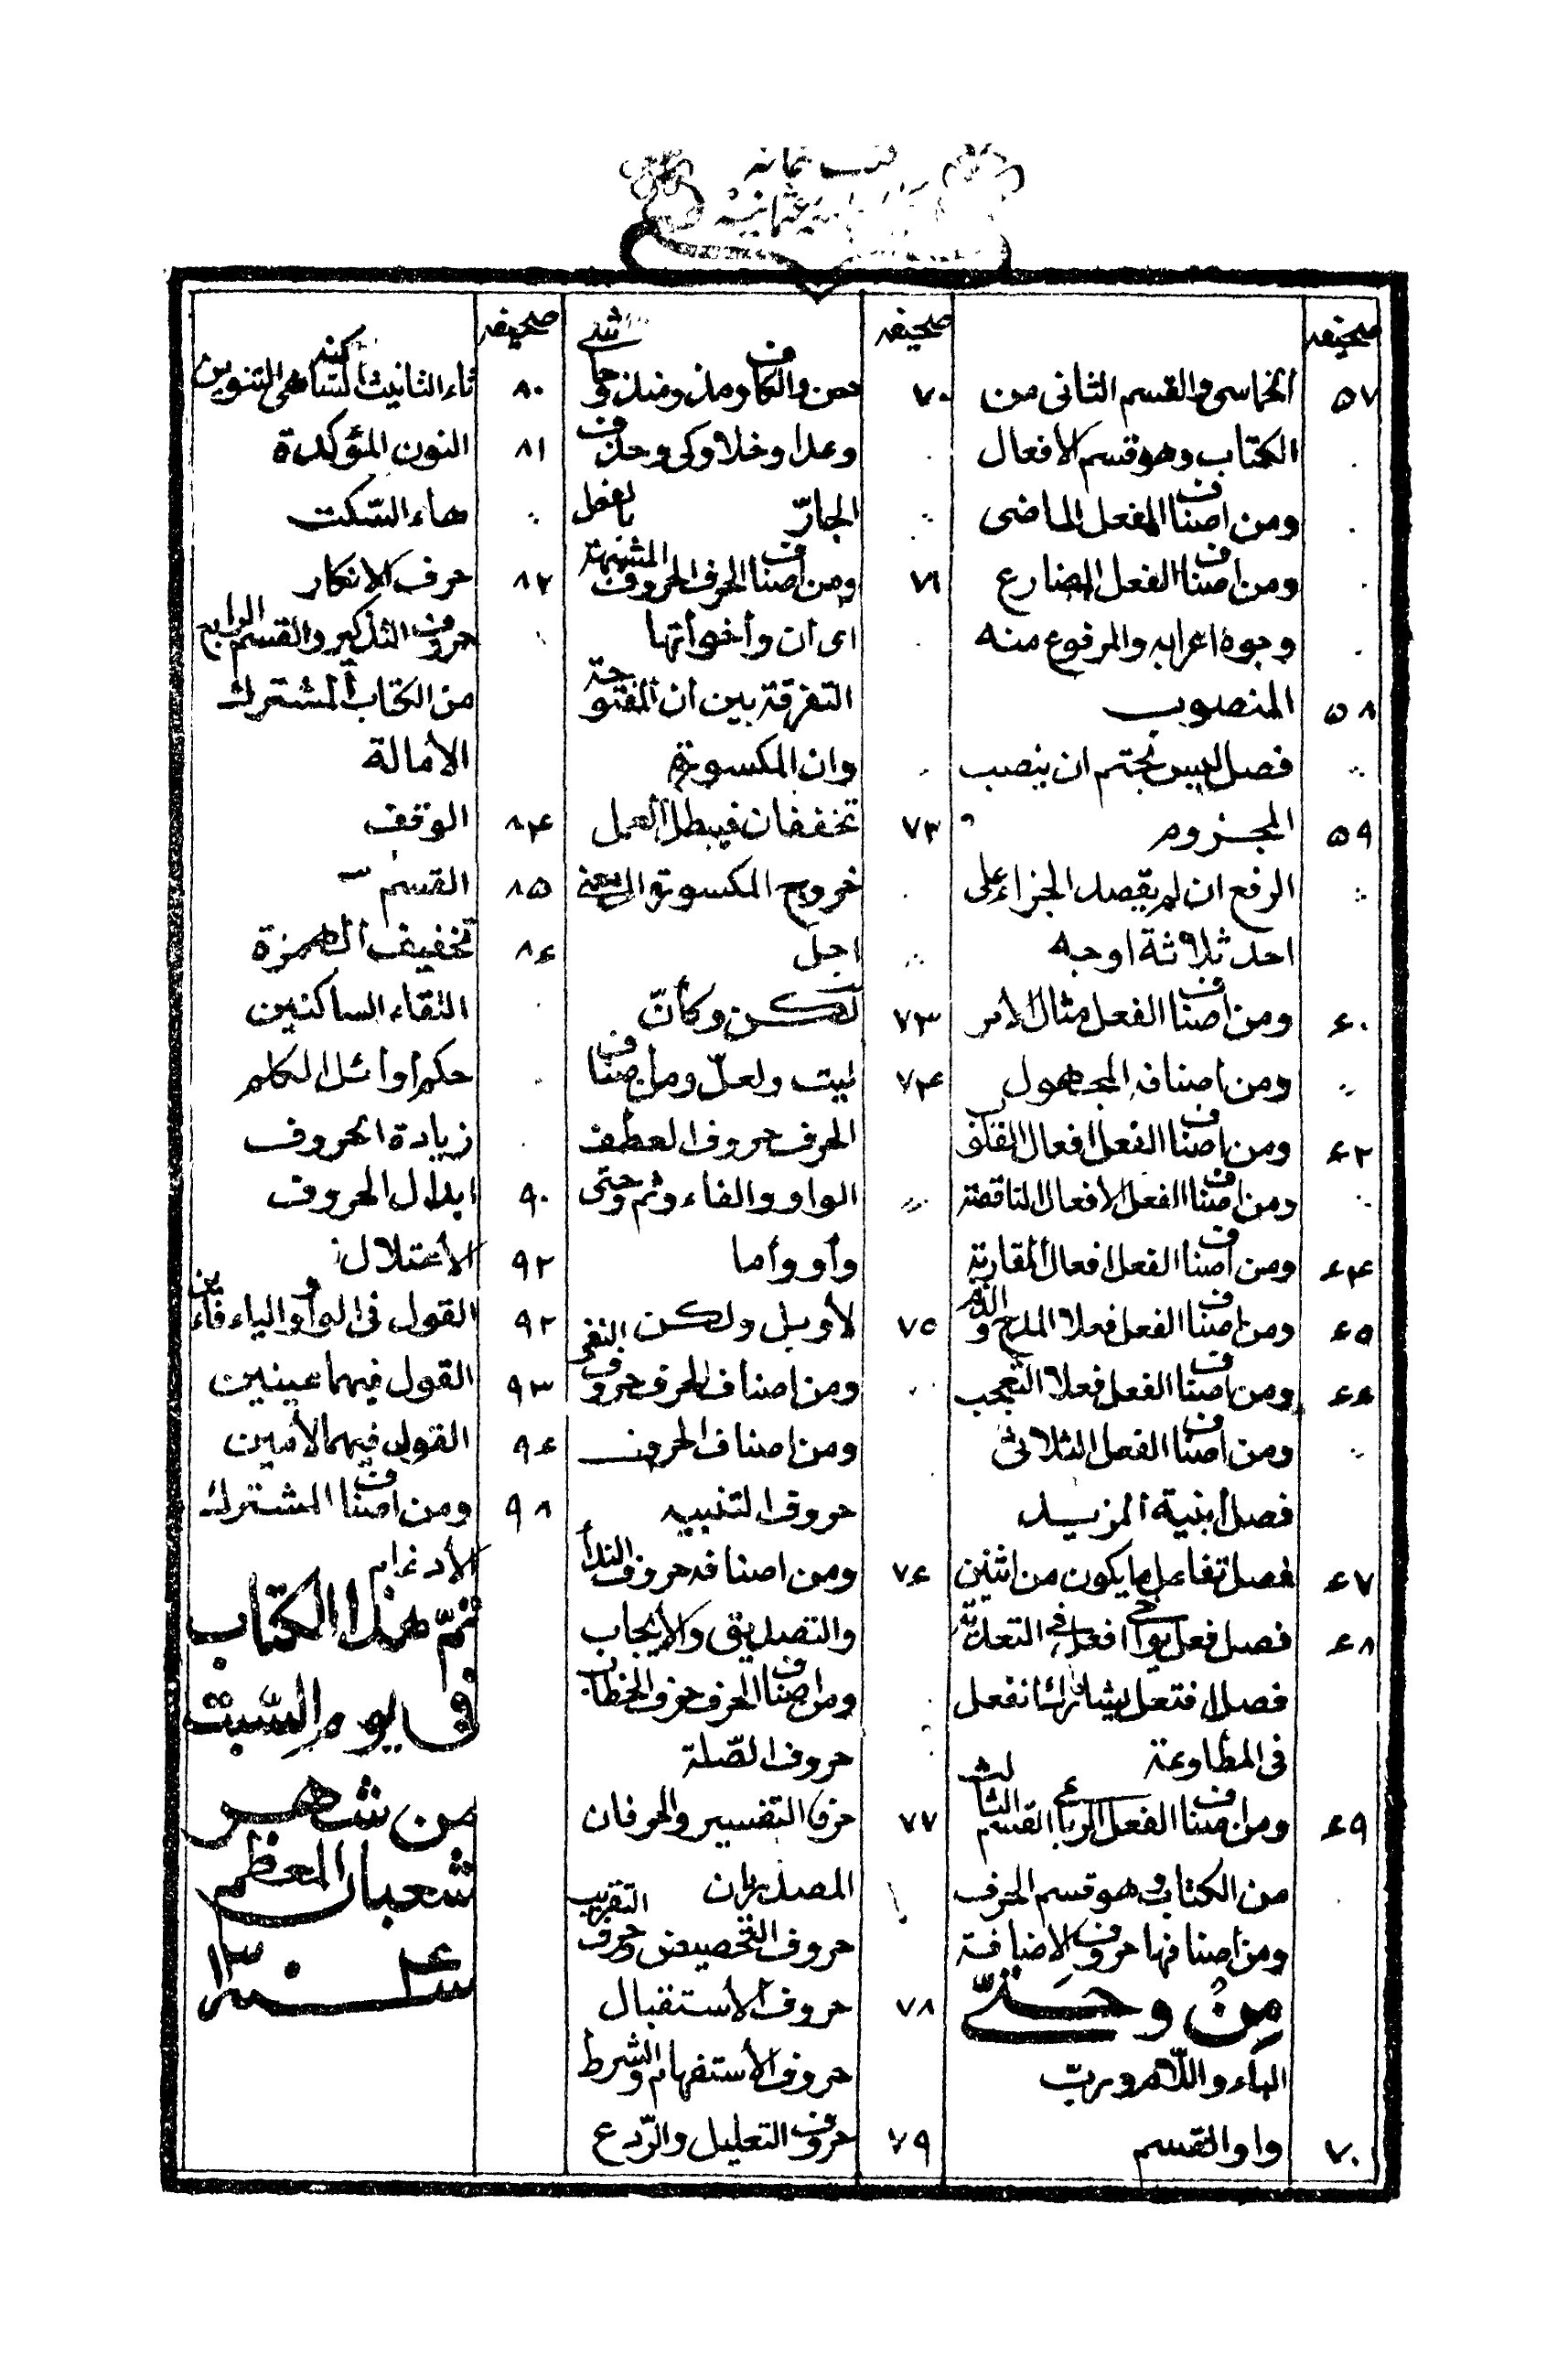 صحيفه
٥٧ الخماسى والقسم الثانى من
الكتاب وهو قسم الافعال
ومن اصناف الفعل الماضى
ومن اصناف الفعل المضارع
وجوه اعرابه والمرفوع منه
٥٨ المنصوب
فصل ليس بحتم ان ينصب
٥٩ المجزوم
الرفع ان لم يقصد الجزاء على
احد ثلاثة اوجه
٦٠ ومن اصناف الفعل مثال الامر
ومن اصنافه المجهول
٦٢ ومن اصناف الفعل افعال القلوب
ومن اصناف الفعل الافعال الناقصة
٦٤ ومن اصناف الفعل افعال المقاربة
٦٥ ومن اصناف الفعل فعلا المدح والذم
٦٦ ومن اصناف الفعل فعلا التعجب
ومن اصناف الفعل الثلاثى
فصل ابنية المزيد
٦٧ فصل تفاعل ما يكون من اثنين
٦٨ فصل فعل يواخى افعل فى التعدية
فصل افتعل يشارك انفعل
فى المطاوعة
٦٩ ومن اصناف الفعل الرباعى القسم الثالث
من الكتاب وهو قسم الحرف
ومن اصنافها حروف الاضافة
مِن وحتّى
الباء واللام وربّ
٧٠ واو القسم
صحيفه
٧٠ وعن والكاف ومذ ومنذ وحاشى
وعدا وخلا وكى وحذف
الجارّ
٧١ ومن اصناف الحرف الحروف المشبهة بالفعل
اى ان وأخواتها
التفرقة بين ان المفتوحة
وان المكسورة
٧٢ تخففان فيبطل العمل
خروج المكسورة الى معنى
اجل
٧٣ لكن وكأنّ
٧٤ ليت ولعلّ ومن اصناف
الحرف حروف العطف
الواو والفاء وثم وحتى
وأو وأما
٧٥ لا وبل ولكن
ومن اصناف الحرف حروف النفى
ومن اصناف الحروف
حروف التنبيه
٧٦ ومن اصنافه حروف الندأ
والتصديق والأيجاب
ومن اصناف الحرف حرف الخطاب
حروف الصّلة
٧٧ حرفا التفسير والحرفان
المصدريان
حروف التحضيض وحرف التقريب
٧٨ حروف الأستقبال
حروف الأستفهام والشرط
٧٩ حروف التعليل والرّدع
صحيفه
٨٠ تاء التانيث الساكنة هى التنوين
٨١ النون المؤكدة
هاء السّكت
٨٢ حرف الانكار
حروف التذكير والقسم الرابع
من الكتاب المشترك
الأمالة
٨٤ الوقف
٨٥ القسم
٨٦ تخفيف الهمزة
التقاء الساكنين
حكم أوائل الكلم
زيادة الحروف
٩٠ ابدال الحروف
٩٢ الأعتلال
٩٢ القول فى الواو والياء فائين
٩٣ القول فيهما عينين
٩٤ القول فيهما لأمين
٩٨ ومن اصناف المشترك
الأدغام
تمّ هذا الكتاب
فى يوم السّبت
من شهر
شعبان المعظم